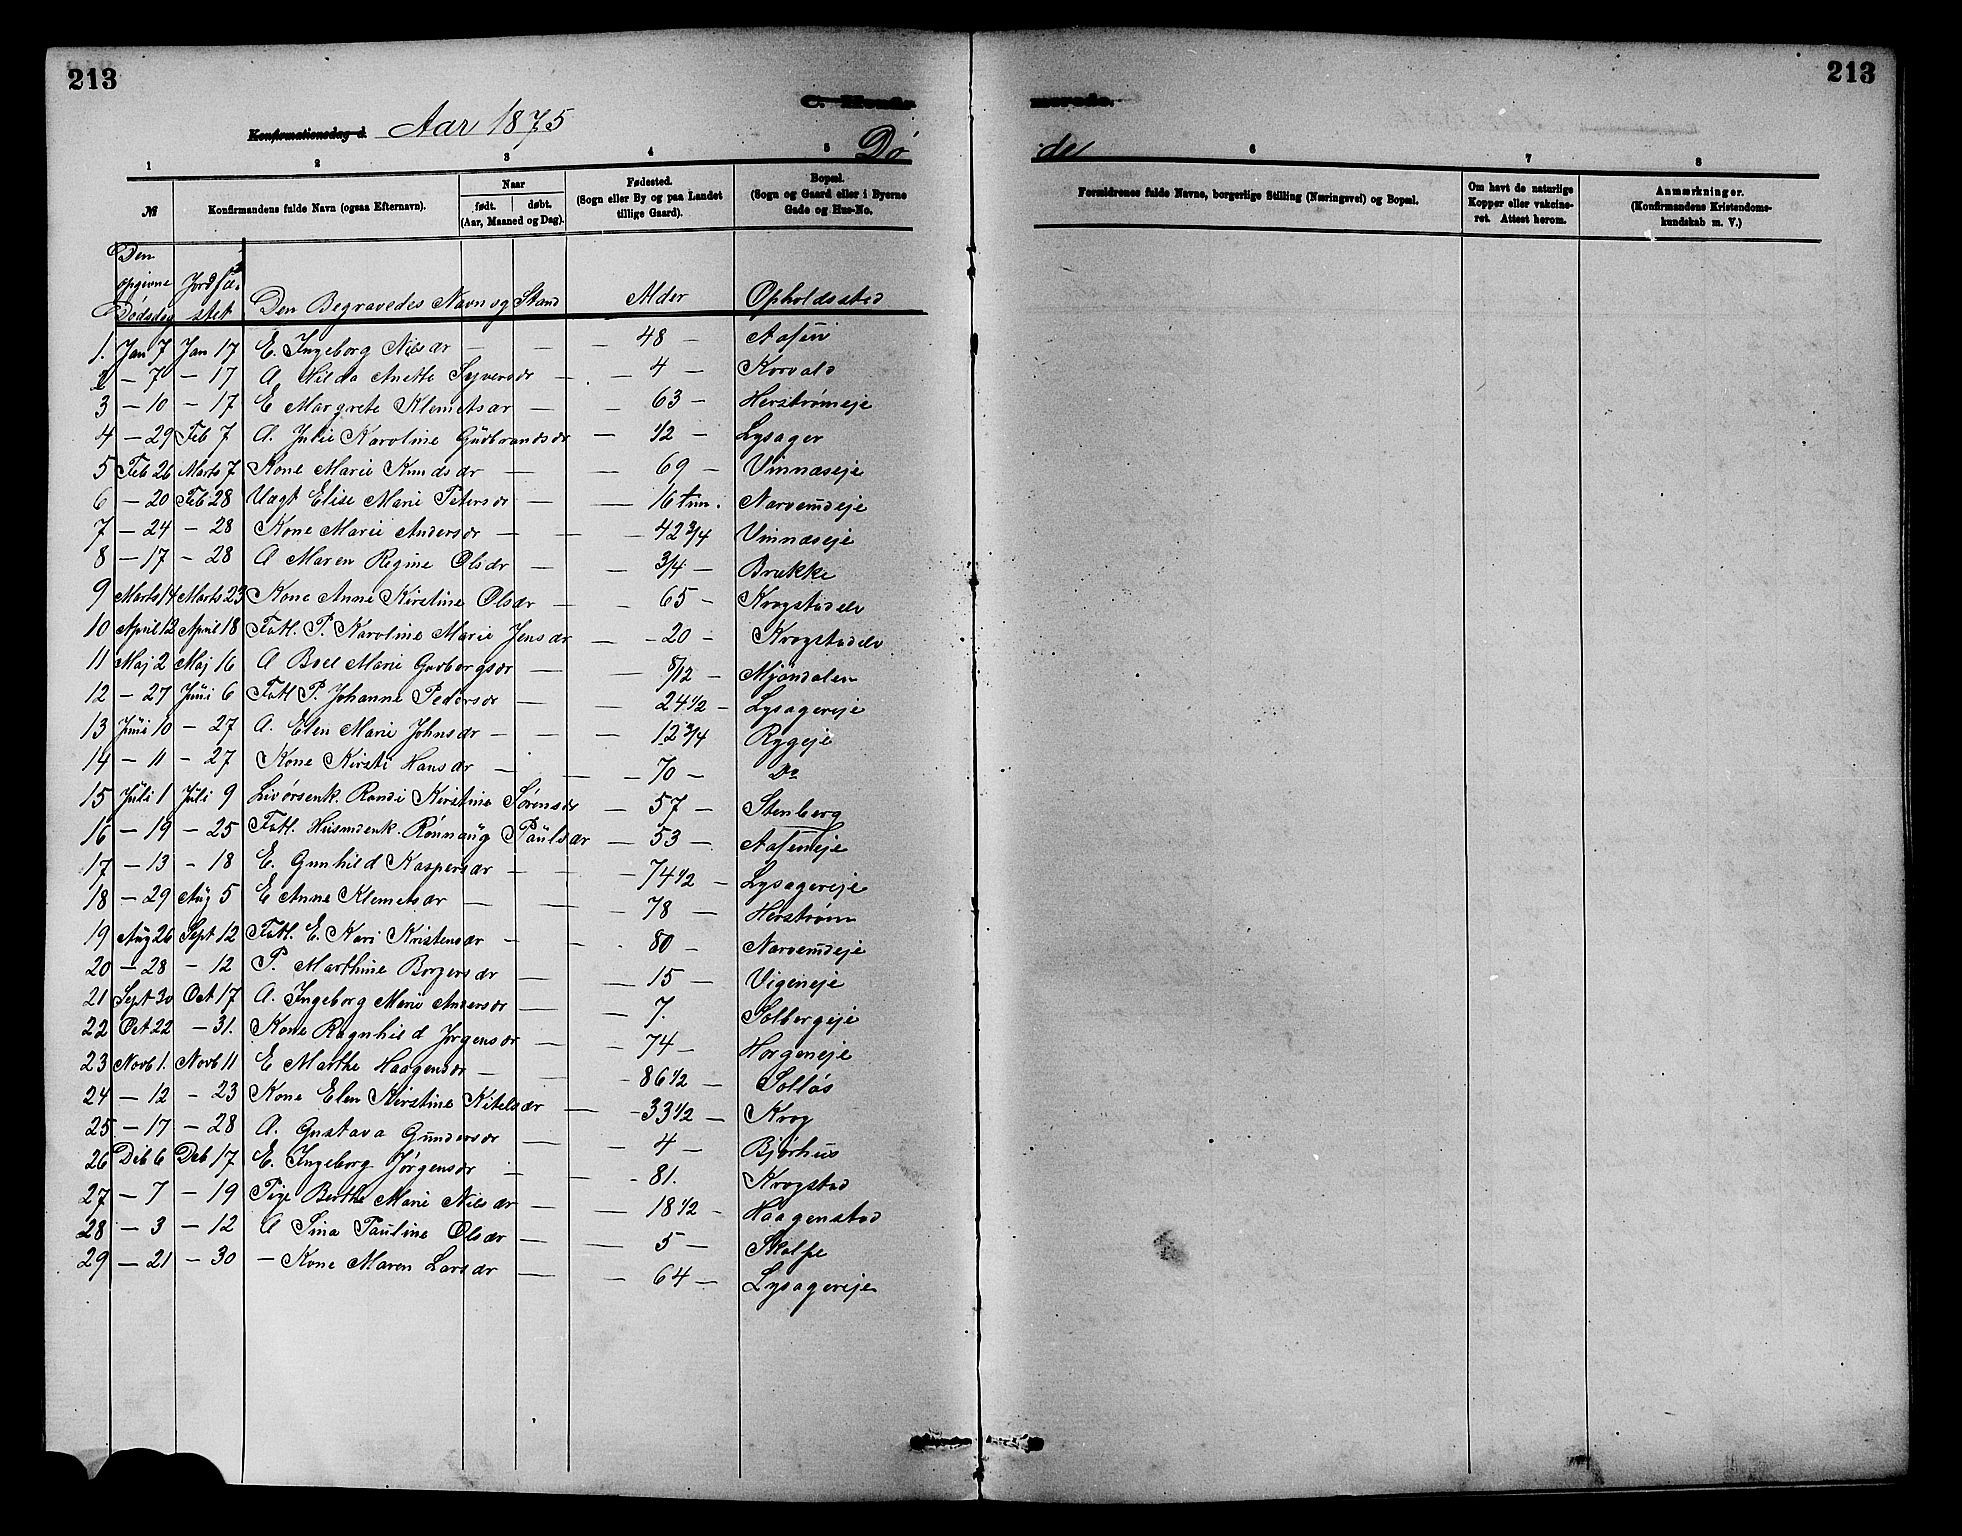 213
213
C. Konfir
merede.
Konfirmationsdag d. Aar 1875
Dø
de
1 2 3 4 5 6 7 8
№ Konfirmandens fulde Navn (ogsaa Efternavn). Naar født. døbt. (Aar, Maaned og Dag). Fødested. (Sogn eller By og paa Landet tillige Gaard). Bopæl. (Sogn og Gaard eller i Byerne Gade og Hus-No.
Forældrenes fulde Navne, borgerlige Stilling (Næringsvei) og Bopæl. Om havt de naturlige Kopper eller vakcineret. Attest herom. Anmærkninger. (Konfirmandens Kristendomskundskab m. V.)
Den opgivne Dødsdag Jordfæstet Den Begravedes Navn og Stand Alder Opholdssted
1. Jan 7 Jan 17 E. Ingeborg Nilsdr — — — 48 — Aasen
2 — 7 — 17 A Hilda Anette Syversdr — — 4 — Korvald
3 — 10 — 17 E Margrete Klemetsdr — — 63 — Herstrømeje
4 — 29 Feb 7 A. Julie Karoline Gudbrandsdr — 1/2 — Lysager
5 Feb 26 Marts 7 Kone Marie Knudsdr — — 69 — Vinnæseje
6 — 20 Feb 28 Uægt Elise Marie Petersdr — — 16 tim. Narverudeje
7 — 24 — 28 Kone Marie Andersdr — — — 42 3/4 Vinnæseje
8 — 17 — 28 A Maren Regine Olsdr — — 3/4 — Brække
9 Marts 14 Marts 23 Kone Anne Kirstine Olsdr — — 65 — Krogstadelv
10 April 12 April 18 Fatl. P. Karoline Marie Jensdr — — 20 — Krogstadelv
11 Maj 2 Maj 16 A Boel Marie Gudborgsdr — — 8/12 — Mjøndalen
12 — 27 Juni 6 Fatl P. Johanne Pedersdr — — 24 1/2 — Lysagereje
13 Juni 10 — 27 A. Elen Marie Johnsdr — — — 12 3/4 Ryggeje
14 — 11 — 27 Kone Kirsti Hansdr — — — 70 — Do
15 Juli 1 Juli 9 Livørsenk. Randi Kirstine Sørensdr — 57 — Stenberg
16 — 19 — 25 Fatl. Husmdenk. Rønnaug Paulsdr — 53 — Aaseneje
17 — 13 — 18 E. Gunhild Kaspersdr — — — 74 1/2 — Lysagereje
18 — 29 Aug 5 E Anne Klemetsdr — — — 78 — Herstrøm
19 Aug 26 Sept 12 Fatl. E. Kari Kristensdr — — 80 — Narverudeje
20 — 28 — 12 P. Marthine Borgersdr — — 15 — Vigeneje
21 Sept 30 Oct 17 A. Ingeborg Marie Andersdr — — 7. Solbergeje
22 Oct 22 — 31. Kone Ragnhild Jørgensdr — — 74 — Horgeneje
23 Novb 1. Novb 11 E Marthe Haagensdr — — — 86 1/2 — Solløs
24 — 12 — 23 Kone Elen Kirstine Kitelsdr — — 33 1/2 — Krog
25 — 17 — 28 A. Gustava Gundersdr — — 4 — Bjørhus
26 Deb 6 Deb 17 E. Ingeborg Jørgensdr — — — 81. Krogstad
27 — 7 — 19 Pige Berthe Marie Nilsdr — — 18 1/2 — Haagenstad
28 — 3 — 12 A Sina Pauline Olsdr — — 5 — Skalpe
29 — 21 — 30 — Kone Maren Larsdr — — 64 — Lysagereje